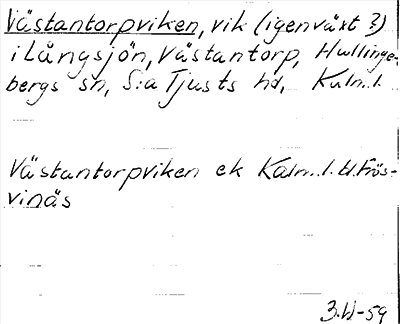 Västantorpviken, vik (igenväxt?)
i Långsjön, Västantorp, Hullinge-
bergs sn, S:a Tjusts hd, Kalm. l.
Västantorpviken ek Kalm. l. Frös-
vinäs
3. -59